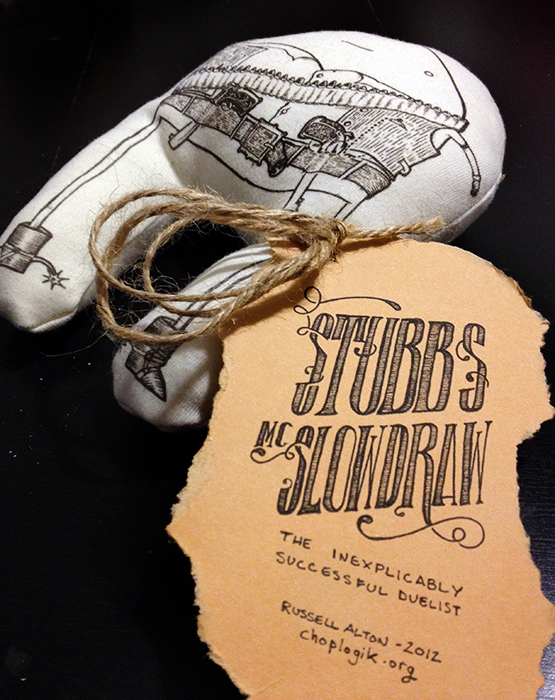 STUBBS
MC SLOWDRAW
THE INEXPLICABLY
SUCCESSFUL DUELIST
RUSSELL ALTON - 2012
choplogik.org